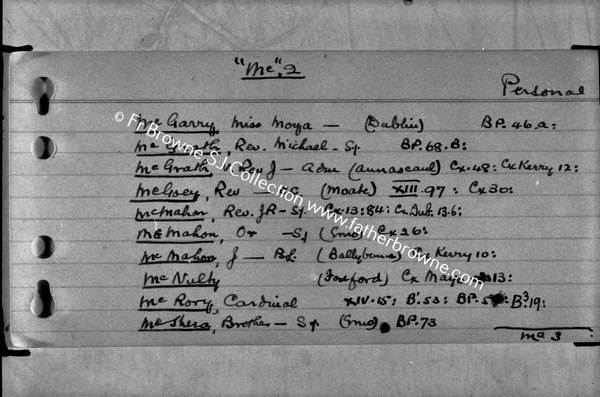 "Mc". 2
Personal
Mc Garry, Miss Moya — (Dublin) BP. 46.a:
Mc Grath, Rev. Michael - SJ. BP. 68. B:
Mc Grath, Rev J - Adm (Annascaul) Cx. 48: Cx Kerry 12:
McGoey, Rev (Moate) XIII. 97: Cx 30:
McMahon, Rev. JR - SJ. Cx. 13: 84: Cx. Dub. 13.6:
McMahon, Or - SJ (Emo) Cx 26:
Mc Mahon, J — (Ballybunion) Cx Kerry 10:
Mc Nulty (Foxford) Cx Mayo 13:
Mc Rory, Cardinal XIV. 15: B. 53: BP. 5 : B³19:
Mc Shera, Brother - SJ (Emo) BP. 73
Mc 3
© Fr Browne S.J. Collection www.fatherbrowne.com